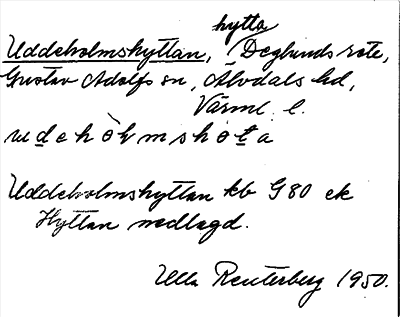 hytta
Uddeholmshyttan, Deglunds rote,
Gustav Adolfs sn, Älvdals hd,
Värml. l.
Uddeholmshyttan kb G80 ek
Hyttan nedlagd.
Ulla Reuterberg 1950.